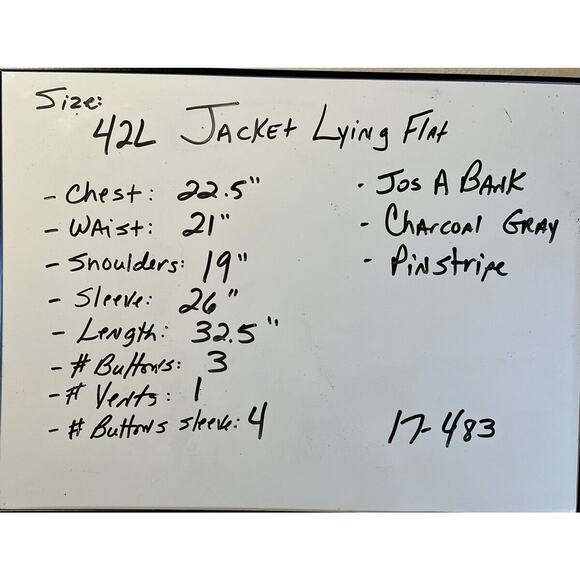 Size:
42L Jacket Lying Flat
- Chest: 22.5"
- Waist: 21"
- Shoulders: 19"
- Sleeve: 26"
- Length: 32.5"
- # Buttons: 3
- # Vents: 1
- # Buttons sleeve: 4
· Jos A Bank
- Charcoal Gray
- Pinstripe
17-483